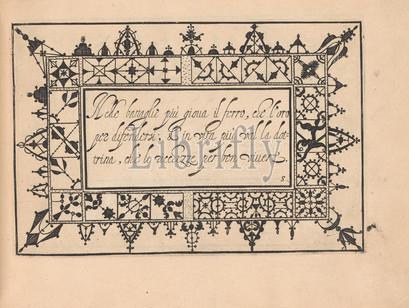 Nelle battaglie più gioua il ferro, che l'oro
per difendersi. Et in vita più val la dot-
trina, che le ricchezze per ben viuere.
s
Librifly